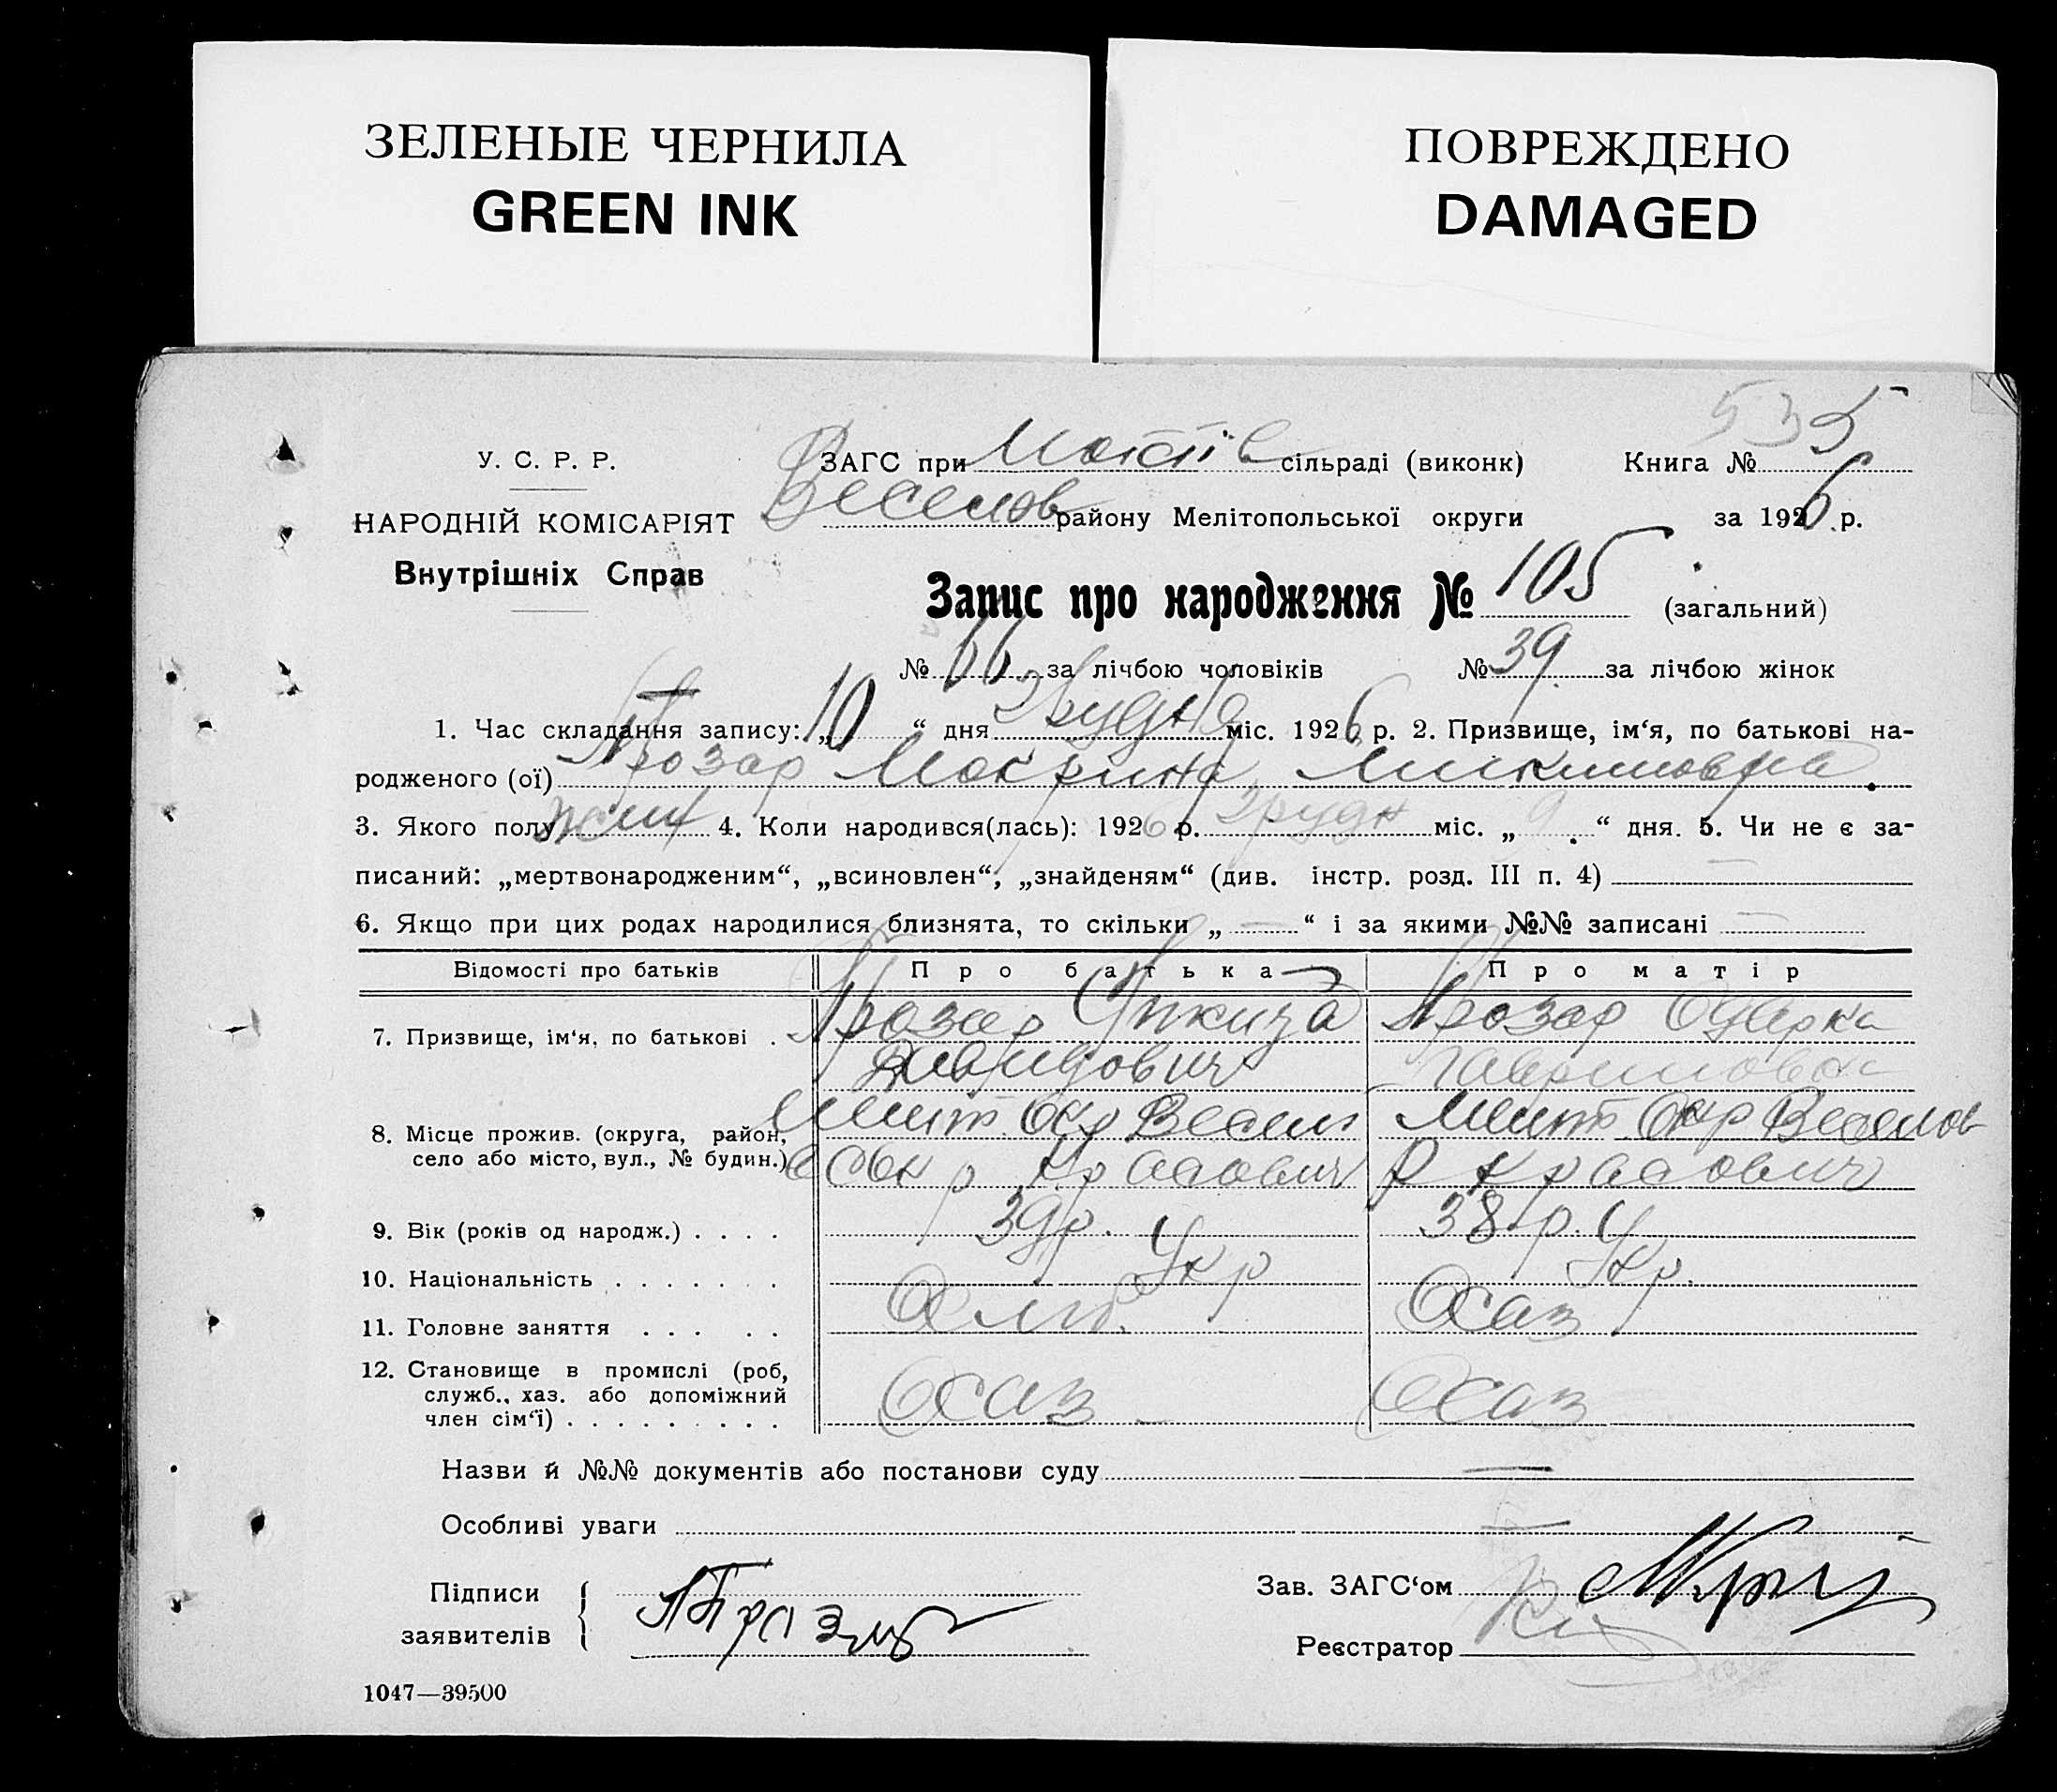 ЗЕЛЕНЫЕ ЧЕРНИЛА
GREEN INK
ПОВРЕЖДЕНО
DAMAGED
535
У. С. Р. Р.
НАРОДНІЙ КОМІСАРІЯТ
Внутрішніх Справ
ЗАГС при сільраді (виконк) Книга №
Веселов району Мелітопольської округи за 1926 р.
Запис про народження № 105 (загальний)
№ 66 за лічбою чоловіків № 39 за лічбою жінок
1. Час складання запису: „10“ дня Грудня міс. 1926 р. 2. Призвище, ім‘я, по батькові на-
родженого (ої) Прозар Мокрина Микитовна
3. Якого полу жін 4. Коли народився(лась): 1926 р. Грудн міс. „9“ дня. 5. Чи не є за-
писаний: „мертвонародженим“, „всиновлен“, „знайденям“ (див. інстр. розд. III п. 4) —
6. Якщо при цих родах народилися близнята, то скільки „—“ і за якими №№ записані —
Відомості про батьків Про батька Про матір
7. Призвище, ім‘я, по батькові . Прозар Микита Прозар Одарка
Давидович Гавриловна
8. Місце прожив. (округа, район, Мелит Окр Весел Мелит Окр Веселов
село або місто, вул., № будин.) р
9. Вік (років од народж.) . . . . 39 р. 38 р.
10. Національність . . . . . . . Укр Укр.
11. Головне заняття . . . . . Хліб. Хаз
12. Становище в промислі (роб,
служб., хаз. або допоміжний
член сім‘ї) . . . . . . . . . Хаз — Хаз
Назви й №№ документів або постанови суду —
Особливі уваги —
Підписи
заявителів
Зав. ЗАГС‘ом
Реєстратор
1047—39500